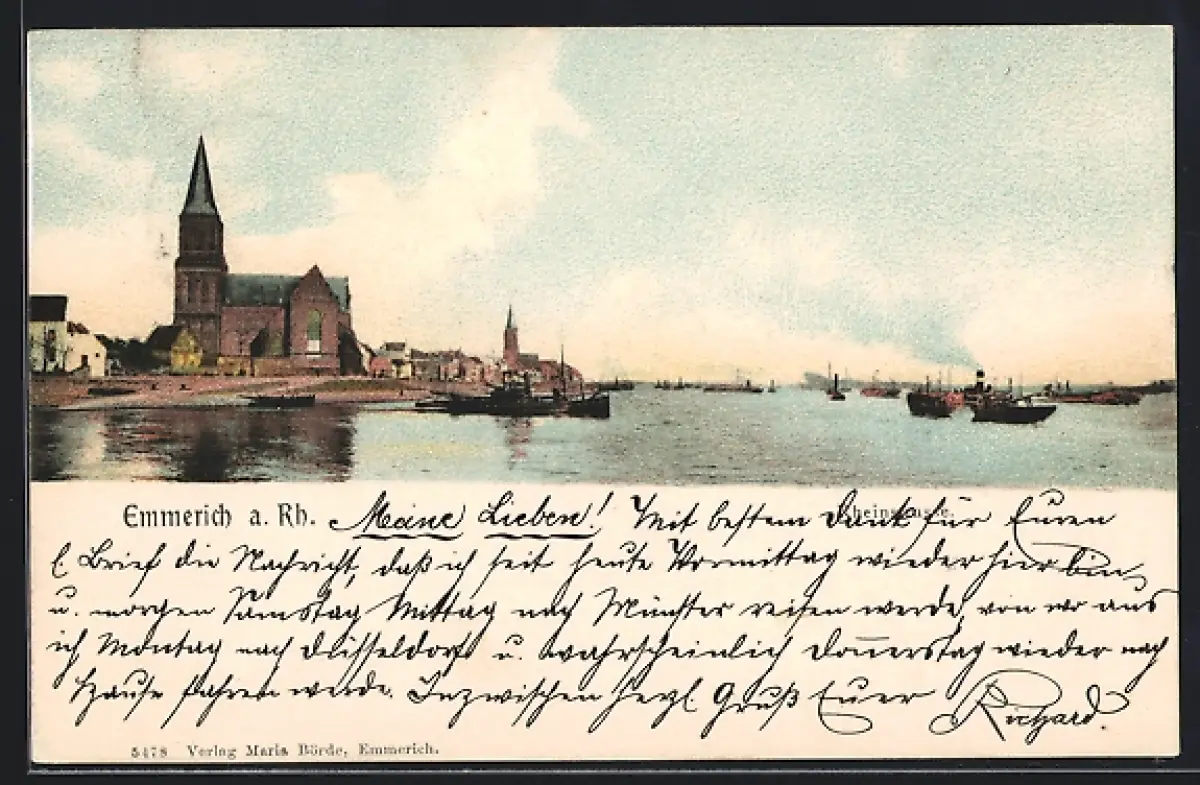 Emmerich a. Rh. Meine Lieben! Mit bestem Dank für Euren
l. Brief die Nachricht, daß ich seit heute Vormittag wieder hier bin,
u. morgen Samstag Mittag nach Münster reisen werde, von wo aus
ich Montag nach Düsseldorf u. wahrscheinlich Donnerstag wieder nach
Hause fahren werde. Inzwischen herzl. Gruß Euer Richard.
5478 Verlag Maria Börde, Emmerich.